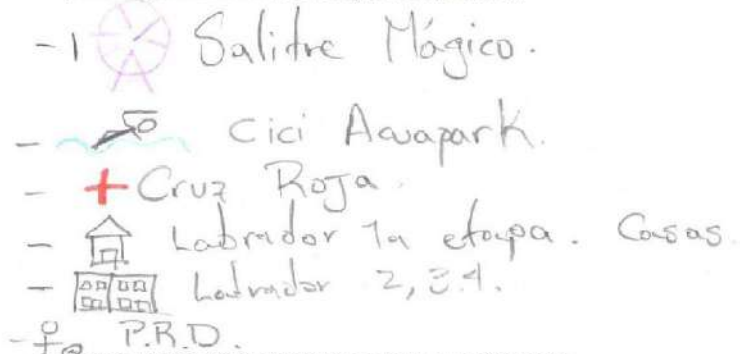 -1 Salitre Mágico.
- Cici Acuapark.
- + Cruz Roja.
- Labrador 1a etapa. Casas.
- Labrador 2, 3.4.
- P.R.D.